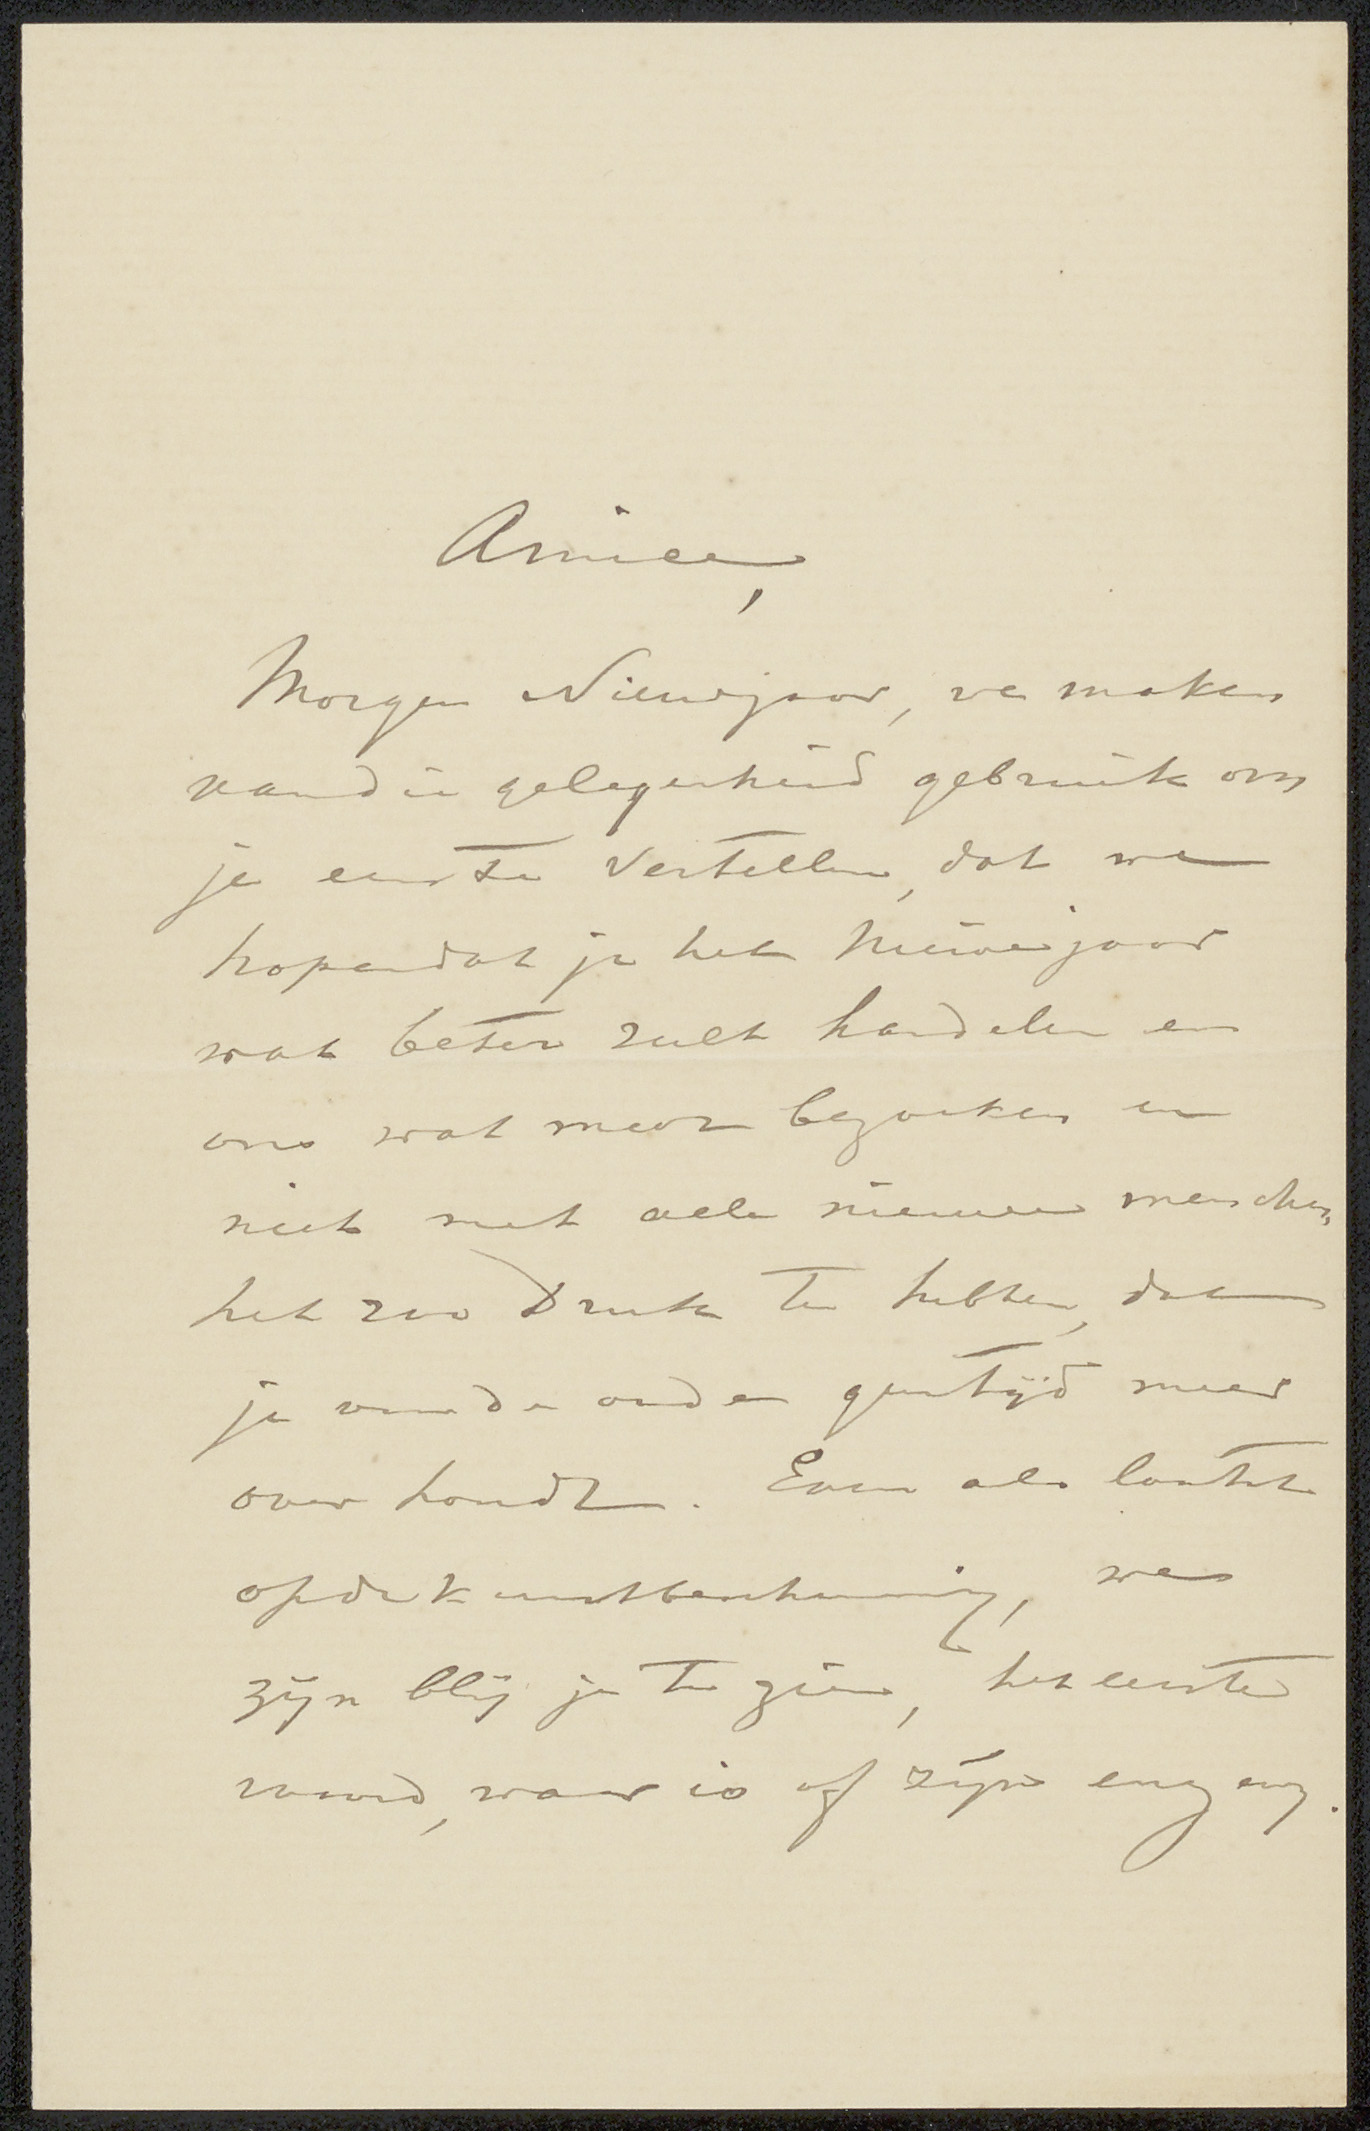 Amice,
Morgen Nieuwjaar, we maken
van die gelegenheid gebruik om
je eens te vertellen, dat we
hopen dat je het nieuwejaar
wat beter zult handelen en
ons wat meer bezoeken en
niet met alle nieuwe menschen
het zoo druk te hebben, dat
je voor de oude geen tijd meer
over houdt. Even als laatst
op de kunstbeschouwing, we
zijn blij je te zien, het eerste
woord, waar is of zijn enz enz.